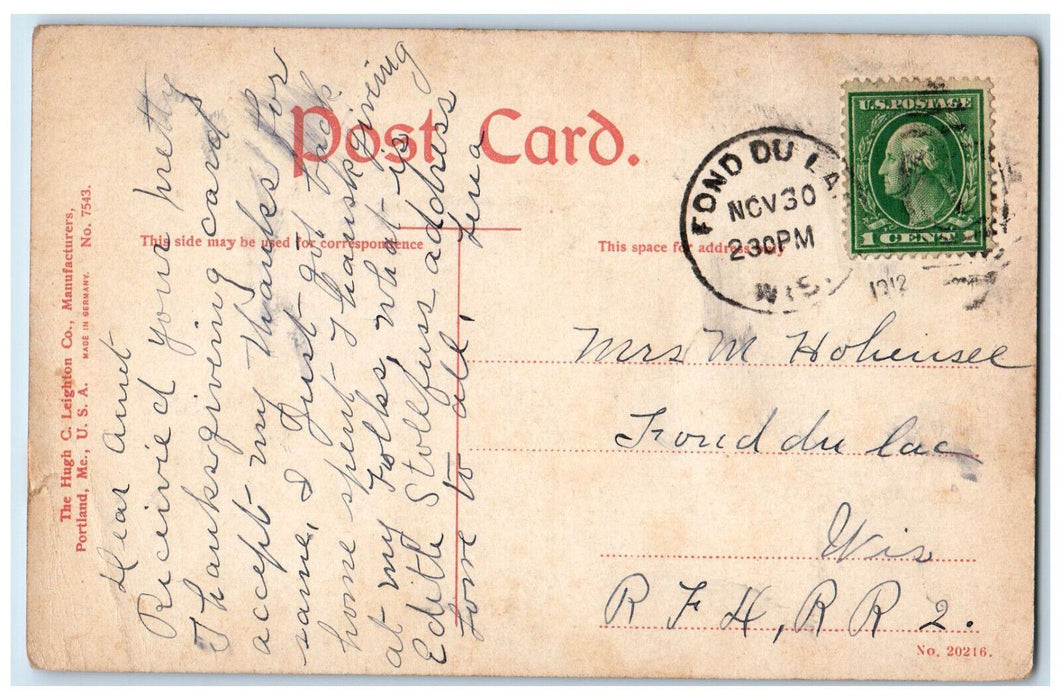 Post Card.
This side may be used for correspondence
This space for address only
The Hugh C. Leighton Co., Manufacturers,
Portland, Me., U. S. A. MADE IN GERMANY. No. 7543.
FOND DU LA
NOV 30
230PM
WIS.
1912
U.S. POSTAGE
1 CENT 1
Dear Aunt
Recivied your pretty
Thanksgiving card
accept my thanks for
same, I Just got back
home spent Thanksgiving
at my Folks, what is
Edith Stollfuss address
Love to all,
Lena
Mrs M Hohensee
Fond du lac
Wis
R F H, R R 2.
No. 20216.